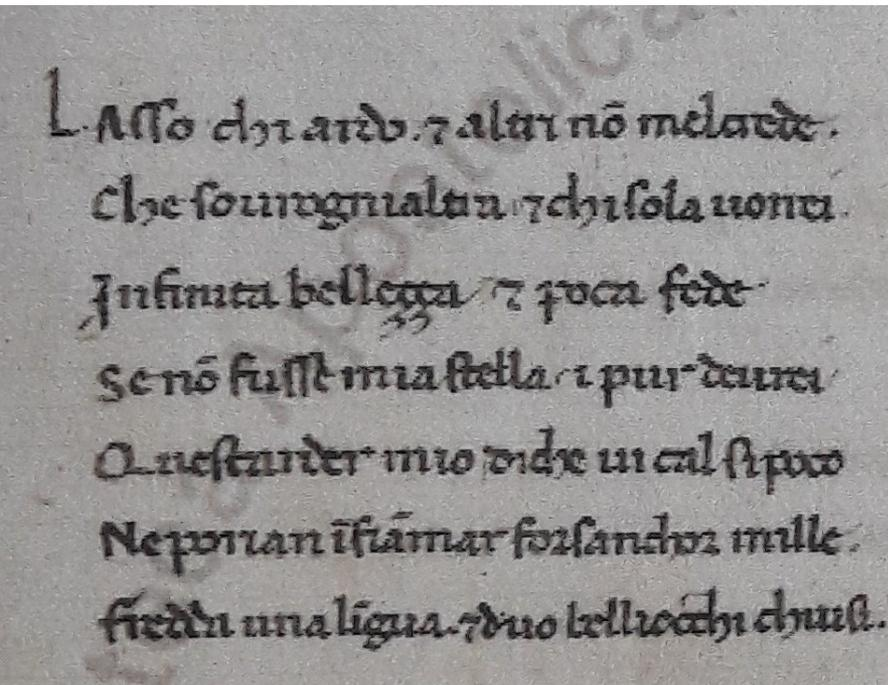 Lasso chi ardo. ⁊ altri nō mel crede.
Che sourognialtra ⁊ chi sola uorrei.
Infinita bellezza / ⁊ poca fede
Se nō fusse mia stella / i pur deurei
Questarder mio di che ui cal si poco
Ne porian īfiāmar forsanchor mille.
fredda una līgua. ⁊ duo belliocchi chiusi.